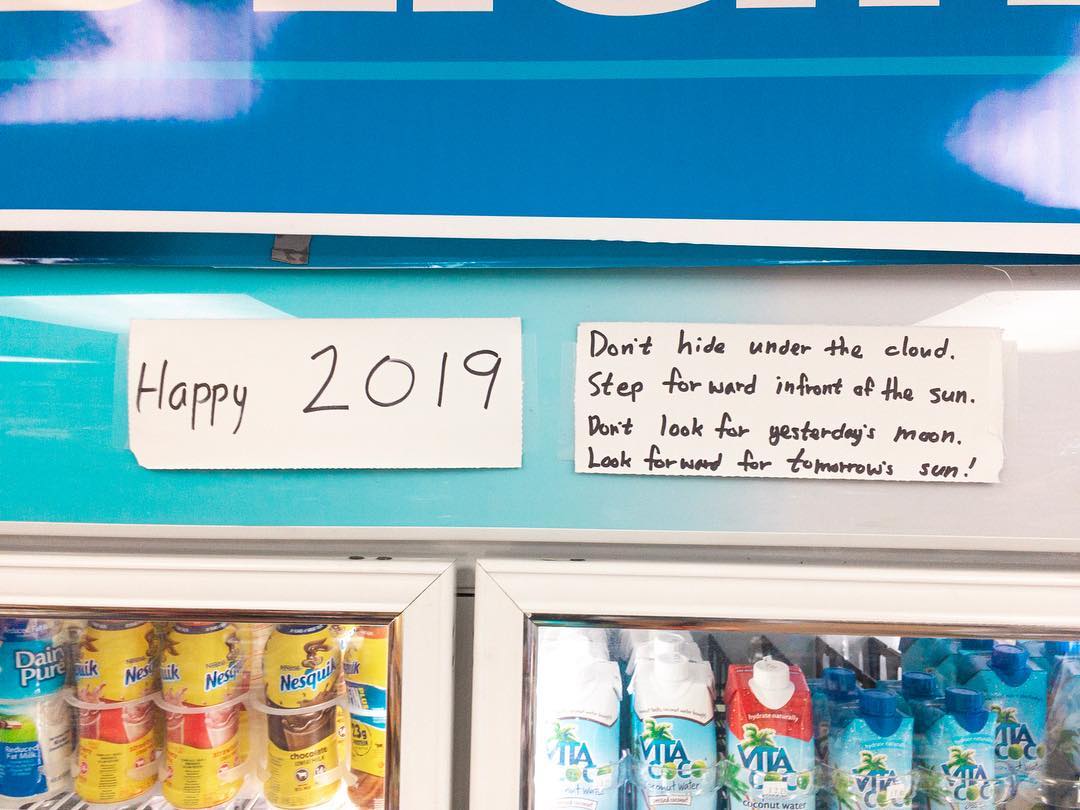 Happy 2019
Don't hide under the cloud.
Step forward infront of the sun.
Don't look for yesterday's moon.
Look forward for tomorrow's sun!
Dairy
Pure
Reduced
Fat Milk
Nesquik
Nesquik
Nesquik
chocolate
23g
PROTEIN
hydrate naturally
VITA
COCO
coconut water
VITA
COCO
coconut water
VITA
COCO
coconut water
hydrate naturally
VITA
COCO
VITA
COCO
VITA
COCO